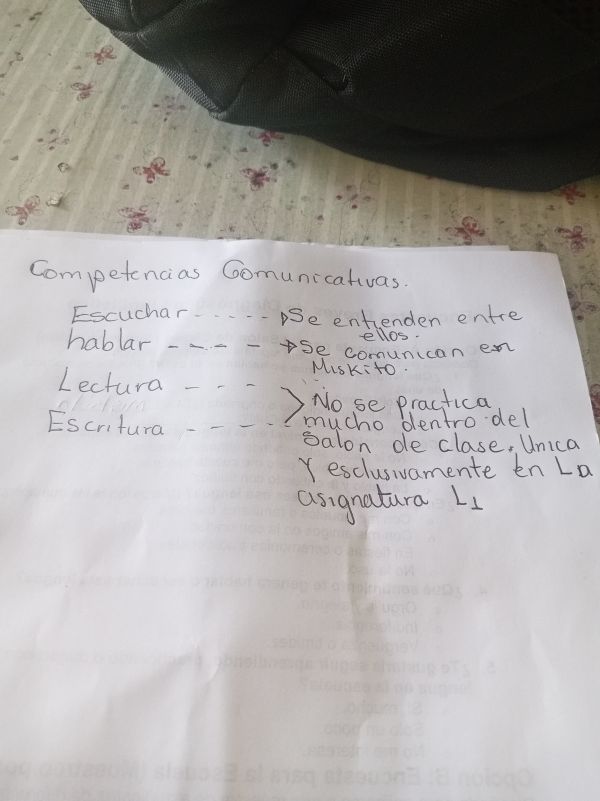 Competencias Comunicativas.
Escuchar ----- → Se entienden entre
ellos.
hablar ---- → Se comunican en
Miskito.
Lectura ---
No se practica
Escritura ----- mucho dentro del
Salon de clase. Unica
Y esclusivamente en La
asignatura L1